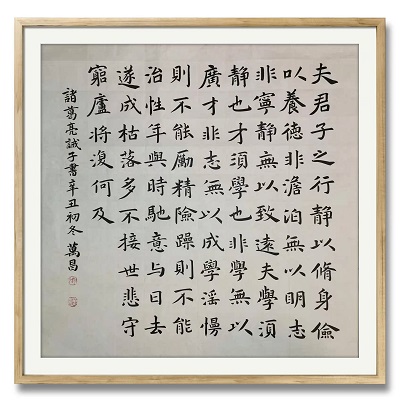 夫君子之行靜以脩身儉
以養德非澹泊無以明志
非寧靜無以致遠夫學須
靜也才須學也非學無以
廣才非志無以成學淫慢
則不能勵精險躁則不能
治性年與時馳意與日去
遂成枯落多不接世悲守
窮廬將復何及
諸葛亮誡子書辛丑初冬萬昌